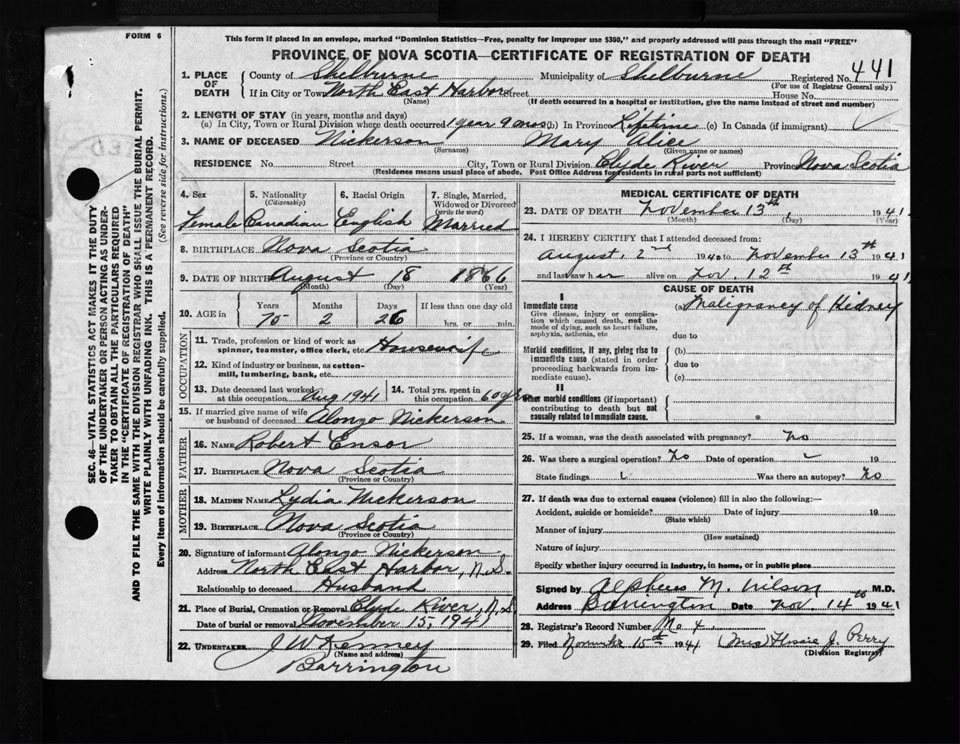 FORM 6
This form if placed in an envelope, marked "Dominion Statistics—Free, penalty for improper use $300", and properly addressed will pass through the mail "FREE"
PROVINCE OF NOVA SCOTIA—CERTIFICATE OF REGISTRATION OF DEATH
1. PLACE OF DEATH County of Shelburne Municipality of Shelburne Registered No. 441
(For use of Registrar General only)
If in City or Town North East Harbor Street House No.
(Name) (If death occurred in a hospital or institution, give the name instead of street and number)
2. LENGTH OF STAY (in years, months and days)
(a) In City, Town or Rural Division where death occurred 1 year 9 mos (b) In Province Lifetime (c) In Canada (if immigrant)
3. NAME OF DECEASED Nickerson Mary Alice
(Surname) (Given name or names)
RESIDENCE No. Street City, Town or Rural Division Clyde River Province Nova Scotia
(Residence means usual place of abode. Post Office Address for residents in rural parts not sufficient)
4. Sex Female
5. Nationality (Citizenship) Canadian
6. Racial Origin English
7. Single, Married, Widowed or Divorced (write the word) Married
8. BIRTHPLACE Nova Scotia
(Province or Country)
9. DATE OF BIRTH August 18 1866
(Month) (Day) (Year)
10. AGE in Years Months Days If less than one day old
75 2 26 hrs. or min.
OCCUPATION
11. Trade, profession or kind of work as spinner, teamster, office clerk, etc. Housewife
12. Kind of industry or business, as cotton-mill, lumbering, bank, etc.
13. Date deceased last worked at this occupation Aug 1941
14. Total yrs. spent in this occupation 60 yrs
15. If married give name of wife or husband of deceased Alonzo Nickerson
FATHER
16. NAME Robert Ensor
17. BIRTHPLACE Nova Scotia
(Province or Country)
MOTHER
18. MAIDEN NAME Lydia Nickerson
19. BIRTHPLACE Nova Scotia
(Province or Country)
20. Signature of informant Alonzo Nickerson
Address North East Harbor, N.S.
Relationship to deceased Husband
21. Place of Burial, Cremation or Removal Clyde River, N.S
Date of burial or removal November 15, 1941
22. UNDERTAKER J W Kenney
(Name and address)
Barrington
MEDICAL CERTIFICATE OF DEATH
23. DATE OF DEATH November 13th, 1941
(Month) (Day) (Year)
24. I HEREBY CERTIFY that I attended deceased from:
August, 2nd 1940 to November 13th 1941
and last saw her alive on Nov. 12th 1941
CAUSE OF DEATH
I
Immediate cause
Give disease, injury or complication which caused death, not the mode of dying, such as heart failure, asphyxia, asthenia, etc
(a) Malignancy of Kidney
due to
Morbid conditions, if any, giving rise to immediate cause (stated in order proceeding backwards from immediate cause).
(b)
due to
(c)
II
Other morbid conditions (if important) contributing to death but not causally related to immediate cause.
25. If a woman, was the death associated with pregnancy? No
26. Was there a surgical operation? No Date of operation
State findings Was there an autopsy? No
27. If death was due to external causes (violence) fill in also the following:—
Accident, suicide or homicide? Date of injury 19
(State which)
Manner of injury
(How sustained)
Nature of injury
Specify whether injury occurred in industry, in home, or in public place
Signed by Alpheus M. Wilson M.D.
Address Barrington Date Nov. 14th 1941
28. Registrar's Record Number No 4
29. Filed November 15th 1941 (Mrs) Flossie J. Perry
(Division Registrar)
SEC. 46—VITAL STATISTICS ACT MAKES IT THE DUTY
OF THE UNDERTAKER OR PERSON ACTING AS UNDER-
TAKER TO OBTAIN ALL THE PARTICULARS REQUIRED
IN THE "CERTIFICATE OF REGISTRATION OF DEATH"
AND TO FILE THE SAME WITH THE DIVISION REGISTRAR WHO SHALL ISSUE THE BURIAL PERMIT.
WRITE PLAINLY WITH UNFADING INK. THIS IS A PERMANENT RECORD.
Every item of information should be carefully supplied. (See reverse side for instructions.)